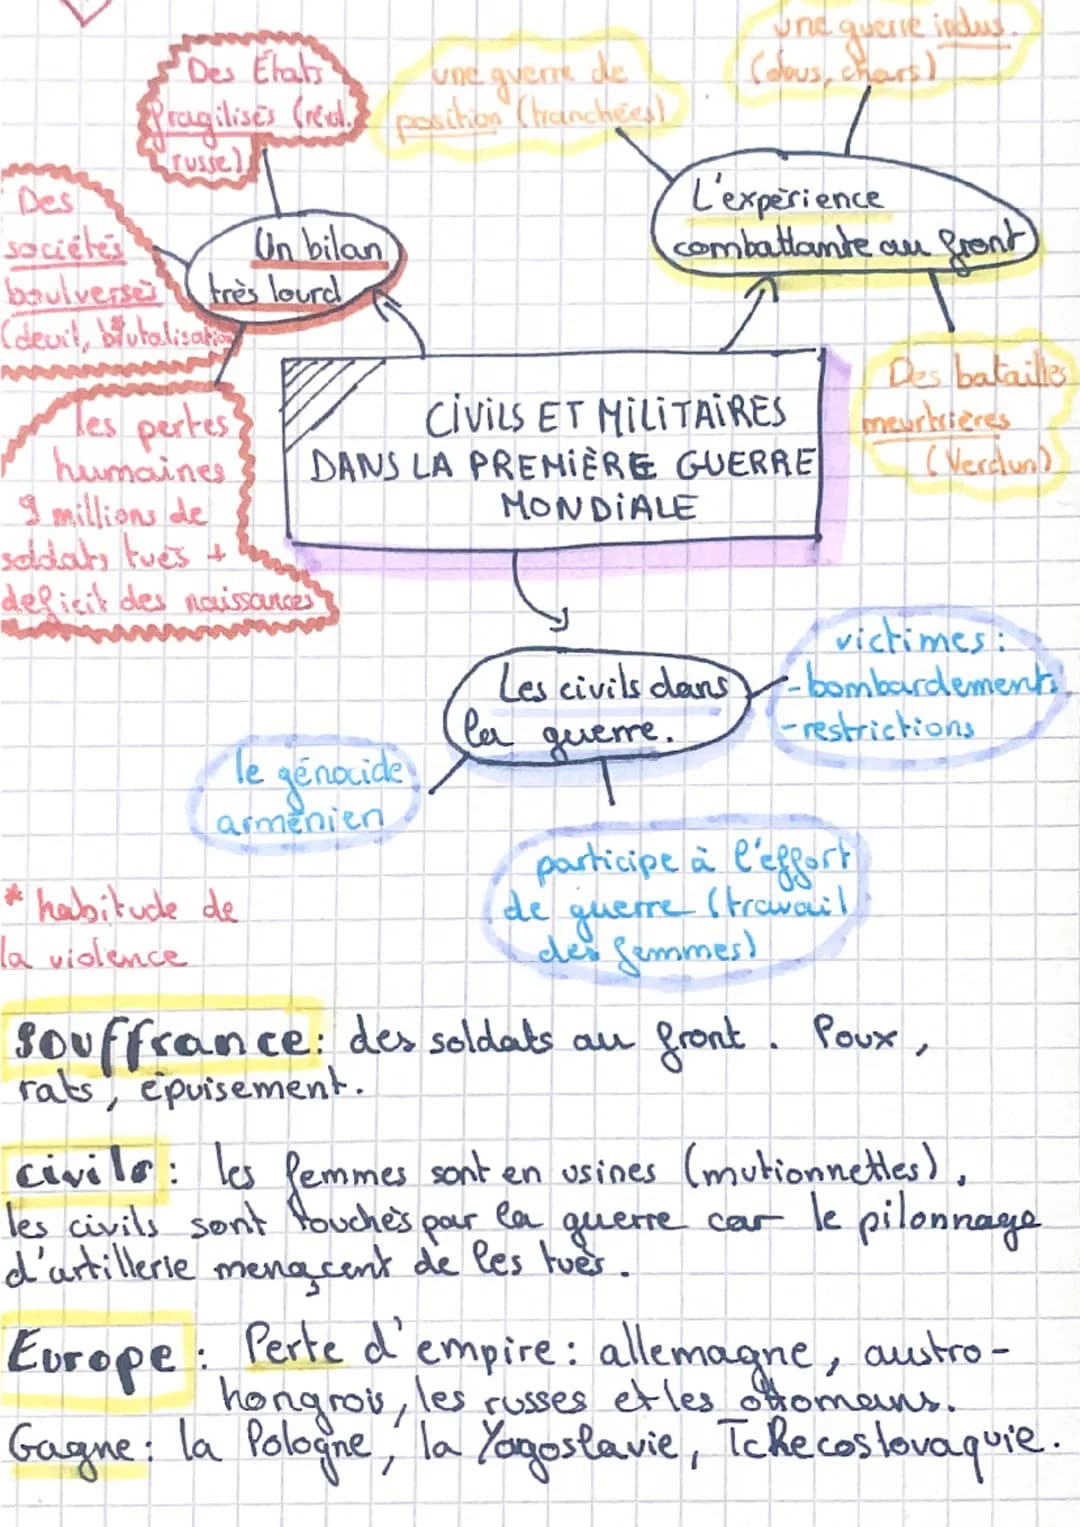 Des États
fragilisés (révol.
russe)
une guerre de
position (tranchées)
une guerre indus.
(obus, chars)
Des
sociétés
boulversés
(deuil, brutalisation
*
Un bilan
très lourd
L'expèrience
combattante au front
Des batailles
meurtrières
(Verdun)
les pertes
humaines
9 millions de
soldats tués +
deficit des naissances
CiViLS ET MiLiTAiRES
DANS LA PREMiÈRE GUERRE
MONDiALE
Les civils dans
la guerre.
victimes :
-bombardements
-restrictions
le génocide
arménien
participe à l'effort
de guerre (travail
des femmes)
* habitude de
la violence
Souffrance: des soldats au front. Poux,
rats, épuisement.
civils: les femmes sont en usines (mutionnettes),
les civils sont touchés par la guerre car le pilonnage
d'artillerie menaçent de les tués.
Europe: Perte d'empire: allemagne, austro-
hongrois, les russes et les ottomans.
Gagne: la Pologne, la Yogoslavie, Tchecoslovaquie.